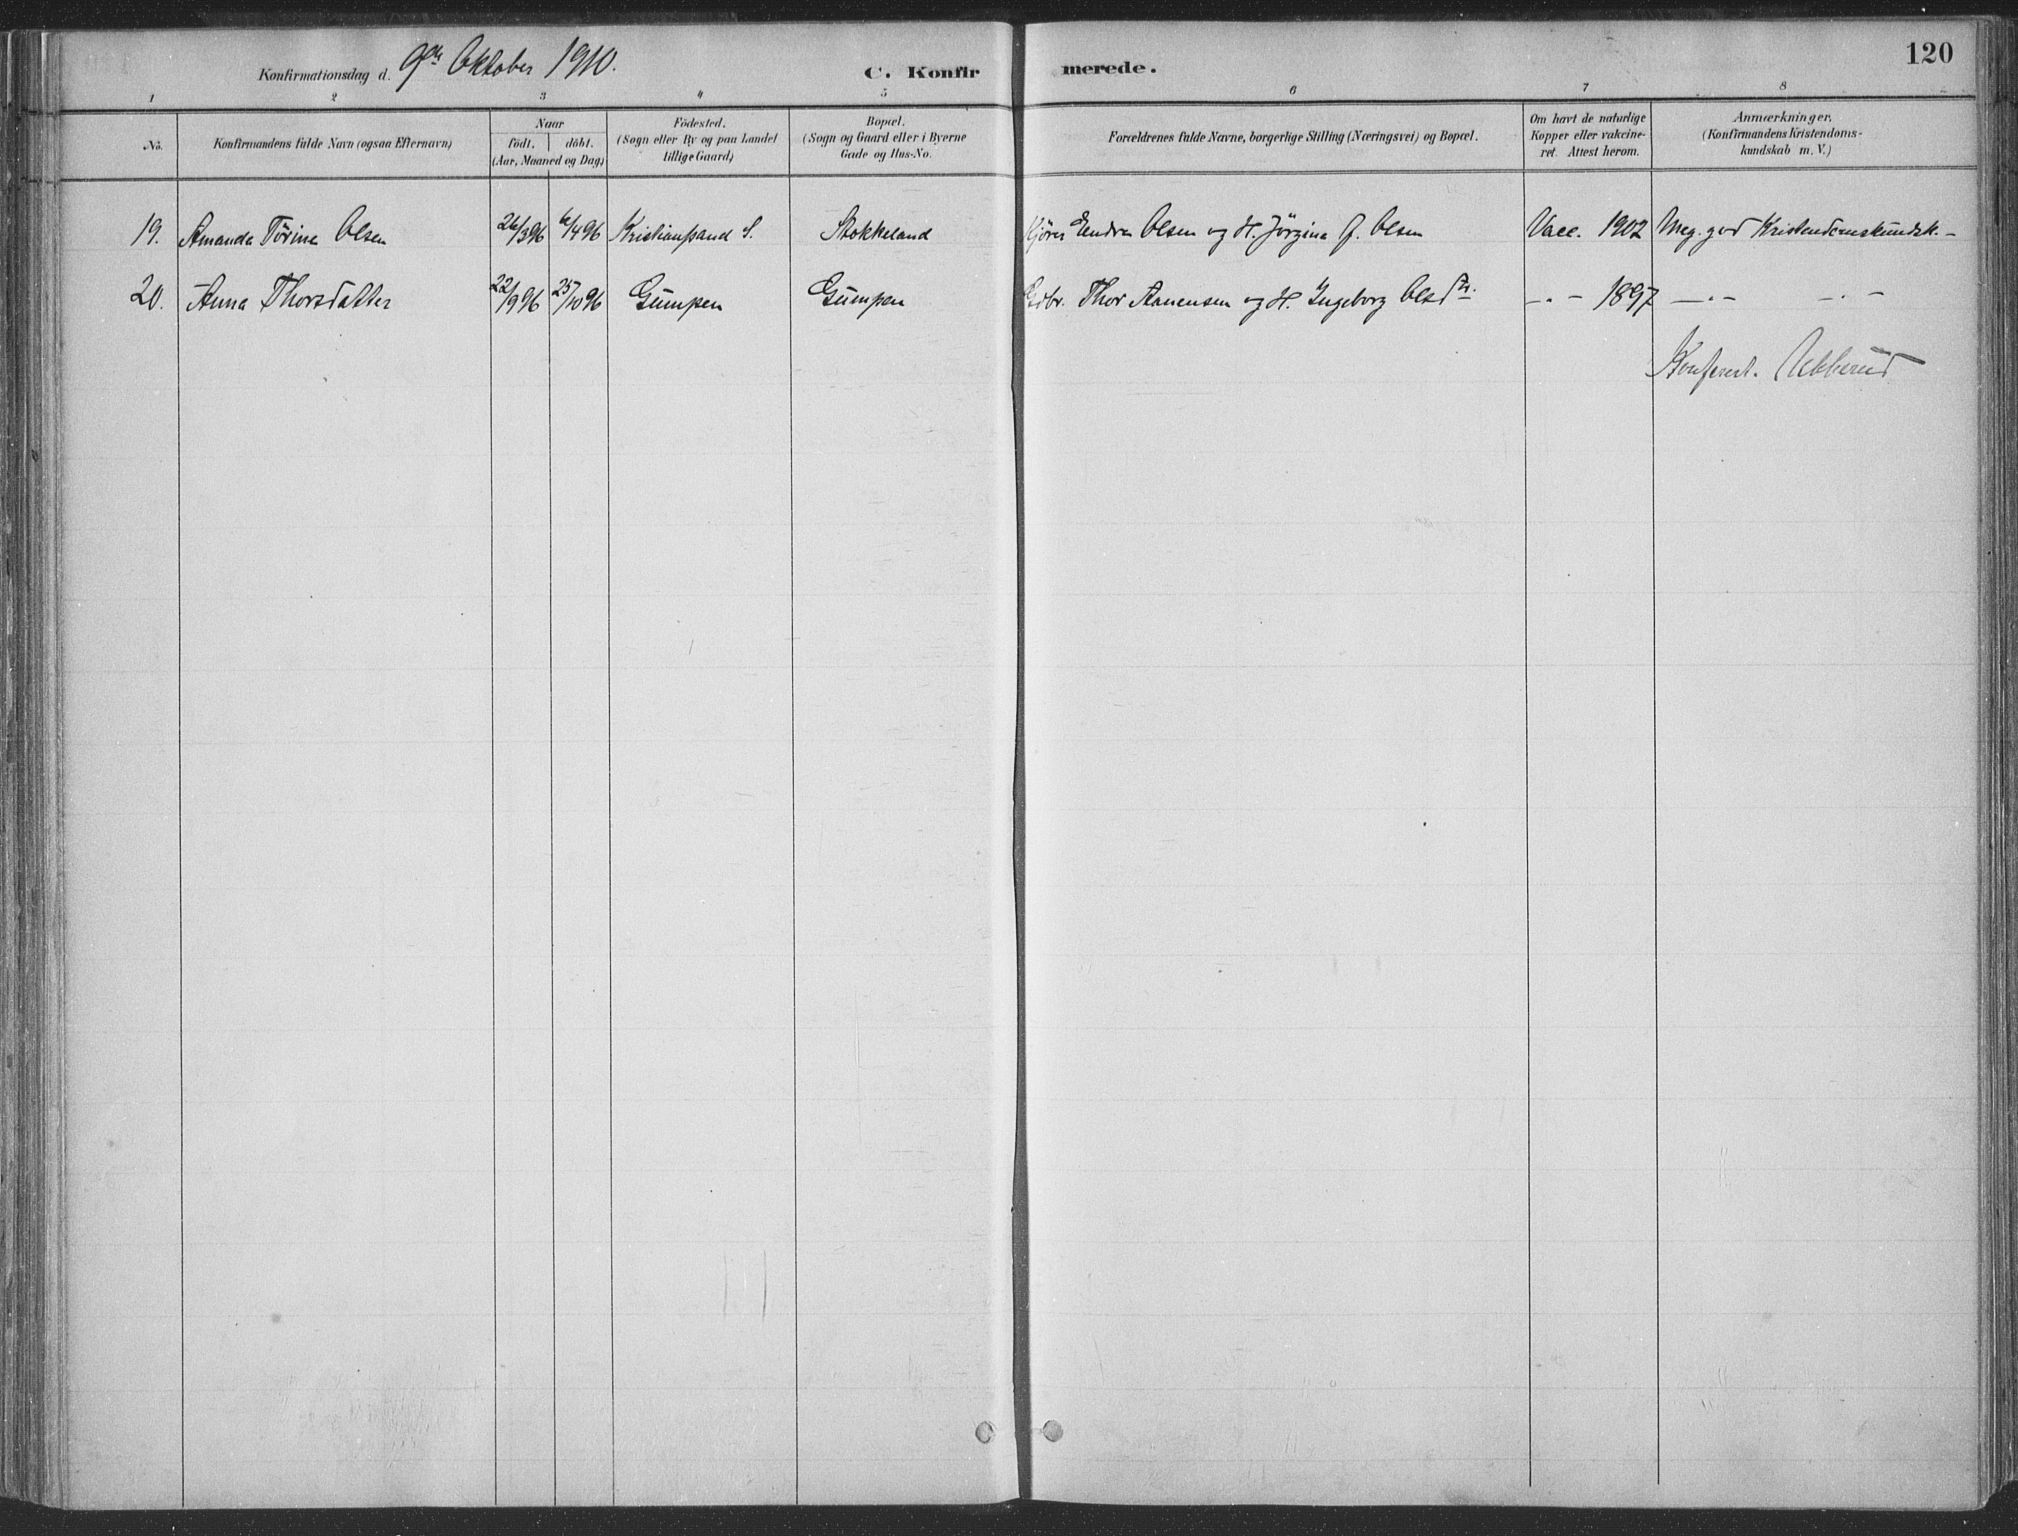 Konfirmationsdag d. 9de Oktober 1910.
C. Konfirmerede.
120
1 2 3 4 5 6 7 8
No.
Konfirmandens fulde Navn (ogsaa Efternavn)
Naar
födt. döbt.
(Aar, Maaned og Dag)
Födested.
(Sogn eller By og paa Landet
tillige Gaard)
Bopæl.
(Sogn og Gaard eller i Byerne
Gade og Hus-No.
Forældrenes fulde Navne, borgerlige Stilling (Næringsvei) og Bopæl.
Om havt de naturlige
Kopper eller vakcine-
ret. Attest herom.
Anmærkninger.
(Konfirmandens Kristendoms-
kundskab m. V.)
19. Amanda Törine Olsen 26/3 96 6/4 96 Kristianssand S. Stokkeland Kjörer Endre Olsen og H. Jörgine G. Olsen Vacc. 1902 Meg. god Kristendomskundsk. -
20. Anna Thorsdatter 22/9 96 25/10 96 Gumpen Gumpen Gdbr. Thor Aanensen og H. Ingeborg Olsdtr. -"- 1897 -"- -"-
Konferert.